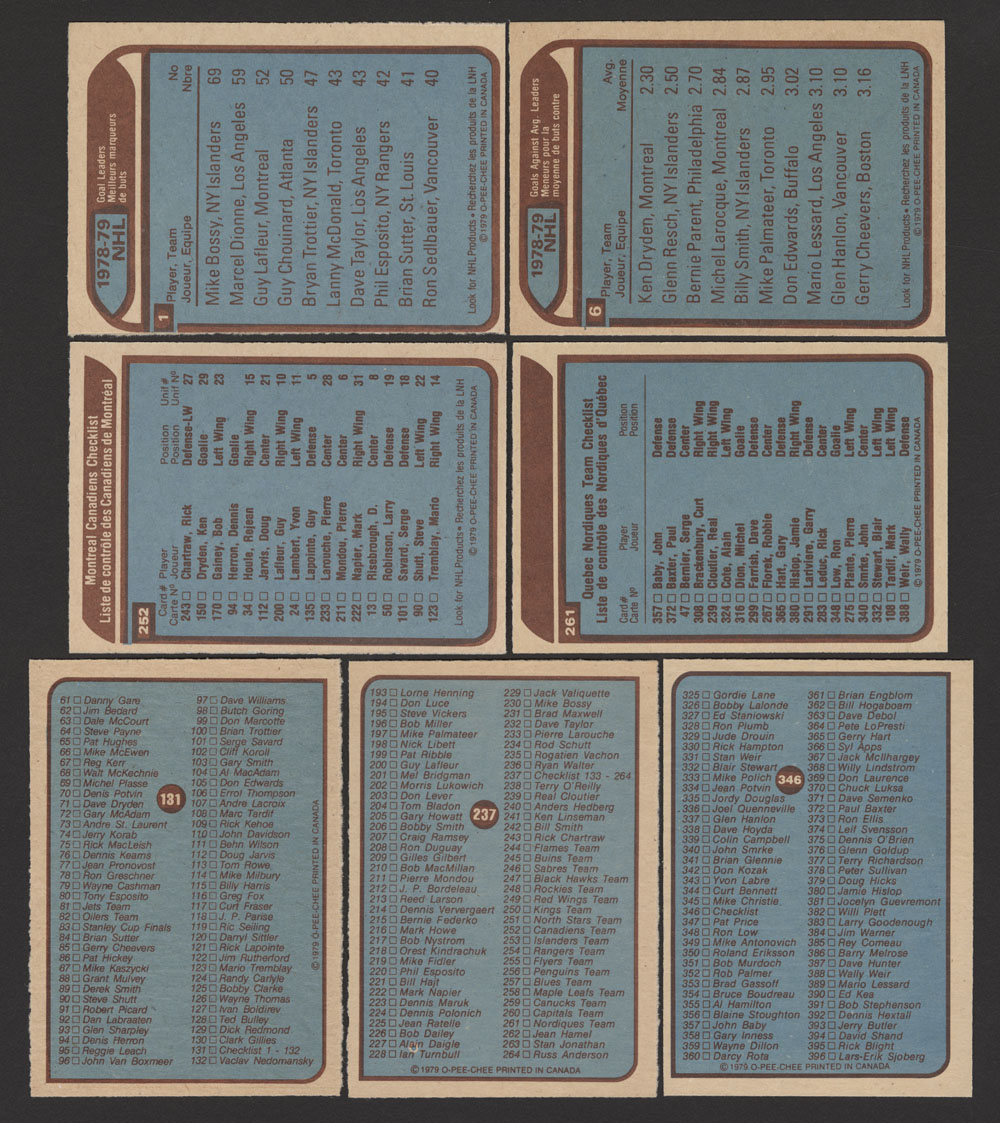 1978-79
NHL
Goal Leaders
Meilleurs marqueurs
de buts
1
Player, Team No
Joueur, Equipe Nbre
Mike Bossy, NY Islanders 69
Marcel Dionne, Los Angeles 59
Guy Lafleur, Montreal 52
Guy Chouinard, Atlanta 50
Bryan Trottier, NY Islanders 47
Lanny McDonald, Toronto 43
Dave Taylor, Los Angeles 43
Phil Esposito, NY Rangers 42
Brian Sutter, St. Louis 41
Ron Sedlbauer, Vancouver 40
Look for NHL Products • Recherchez les produits de la LNH
© 1979 O-PEE-CHEE PRINTED IN CANADA
1978-79
NHL
Goals Against Avg. Leaders
Meneurs pour la
moyenne de buts contre
6
Player, Team Avg.
Joueur, Equipe Moyenne
Ken Dryden, Montreal 2.30
Glenn Resch, NY Islanders 2.50
Bernie Parent, Philadelphia 2.70
Michel Larocque, Montreal 2.84
Billy Smith, NY Islanders 2.87
Mike Palmateer, Toronto 2.95
Don Edwards, Buffalo 3.02
Mario Lessard, Los Angeles 3.10
Glen Hanlon, Vancouver 3.10
Gerry Cheevers, Boston 3.16
Look for NHL Products • Recherchez les produits de la LNH
© 1979 O-PEE-CHEE PRINTED IN CANADA
Montreal Canadiens Checklist
Liste de contrôle des Canadiens de Montréal
252
Card # Player Position Unif #
Carte Nº Joueur Position Unif Nº
243 □ Chartraw, Rick Defense-LW 27
150 □ Dryden, Ken Goalie 29
170 □ Gainey, Bob Left Wing 23
94 □ Herron, Dennis Goalie
34 □ Houle, Rejean Right Wing 15
112 □ Jarvis, Doug Center 21
200 □ Lafleur, Guy Right Wing 10
24 □ Lambert, Yvon Left Wing 11
135 □ Lapointe, Guy Defense 5
233 □ Larouche, Pierre Center 28
211 □ Mondou, Pierre Center 6
222 □ Napier, Mark Right Wing 31
13 □ Risebrough, D. Center 8
50 □ Robinson, Larry Defense 19
101 □ Savard, Serge Defense 18
90 □ Shutt, Steve Left Wing 22
123 □ Tremblay, Mario Right Wing 14
Look for NHL Products • Recherchez les produits de la LNH
© 1979 O-PEE-CHEE PRINTED IN CANADA
261
Quebec Nordiques Team Checklist
Liste de contrôle des Nordiques d'Québec
Card # Player Position
Carte Nº Joueur Position
357 □ Baby, John Defense
372 □ Baxter, Paul Defense
47 □ Bernier, Serge Center
308 □ Brackenbury, Curt Right Wing
239 □ Cloutier, Real Right Wing
324 □ Cote, Alain Left Wing
316 □ Dion, Michel Goalie
299 □ Farrish, Dave Defense
267 □ Florek, Robbie Center
365 □ Hart, Gary Defense
380 □ Hislop, Jamie Right Wing
291 □ Lariviere, Garry Defense
283 □ Leduc, Rick Center
348 □ Low, Ron Goalie
275 □ Plante, Pierre Center
340 □ Smrke, John Left Wing
332 □ Stewart, Blair Left Wing
108 □ Tardif, Marc Left Wing
388 □ Weir, Wally Defense
© 1979 O-PEE-CHEE PRINTED IN CANADA
61 □ Danny Gare
62 □ Jim Bedard
63 □ Dale McCourt
64 □ Steve Payne
65 □ Pat Hughes
66 □ Mike McEwen
67 □ Reg Kerr
68 □ Walt McKechnie
69 □ Michel Plasse
70 □ Denis Potvin
71 □ Dave Dryden
72 □ Gary McAdam
73 □ Andre St. Laurent
74 □ Jerry Korab
75 □ Rick MacLeish
76 □ Dennis Kearns
77 □ Jean Pronovost
78 □ Ron Greschner
79 □ Wayne Cashman
80 □ Tony Esposito
81 □ Jets Team
82 □ Oilers Team
83 □ Stanley Cup Finals
84 □ Brian Sutter
85 □ Gerry Cheevers
86 □ Pat Hickey
87 □ Mike Kaszycki
88 □ Grant Mulvey
89 □ Derek Smith
90 □ Steve Shutt
91 □ Robert Picard
92 □ Dan Labraaten
93 □ Glen Sharpley
94 □ Denis Herron
95 □ Reggie Leach
96 □ John Van Boxmeer
131
97 □ Dave Williams
98 □ Butch Goring
99 □ Don Marcotte
100 □ Brian Trottier
101 □ Serge Savard
102 □ Cliff Koroll
103 □ Gary Smith
104 □ Al MacAdam
105 □ Don Edwards
106 □ Errol Thompson
107 □ Andre Lacroix
108 □ Marc Tardif
109 □ Rick Kehoe
110 □ John Davidson
111 □ Behn Wilson
112 □ Doug Jarvis
113 □ Tom Rowe
114 □ Mike Milbury
115 □ Billy Harris
116 □ Greg Fox
117 □ Curt Fraser
118 □ J. P. Parise
119 □ Ric Seiling
120 □ Darryl Sittler
121 □ Rick Lapointe
122 □ Jim Rutherford
123 □ Mario Tremblay
124 □ Randy Carlyle
125 □ Bobby Clarke
126 □ Wayne Thomas
127 □ Ivan Boldirev
128 □ Ted Bulley
129 □ Dick Redmond
130 □ Clark Gillies
131 □ Checklist 1 - 132
132 □ Vaclav Nedomansky
© 1979 O-PEE-CHEE PRINTED IN CANADA
193 □ Lorne Henning
194 □ Don Luce
195 □ Steve Vickers
196 □ Bob Miller
197 □ Mike Palmateer
198 □ Nick Libett
199 □ Pat Ribble
200 □ Guy Lafleur
201 □ Mel Bridgman
202 □ Morris Lukowich
203 □ Don Lever
204 □ Tom Bladon
205 □ Gary Howatt
206 □ Bobby Smith
207 □ Craig Ramsey
208 □ Ron Duguay
209 □ Gilles Gilbert
210 □ Bob MacMillan
211 □ Pierre Mondou
212 □ J. P. Bordeleau
213 □ Reed Larson
214 □ Dennis Ververgaert
215 □ Bernie Federko
216 □ Mark Howe
217 □ Bob Nystrom
218 □ Orest Kindrachuk
219 □ Mike Fidler
220 □ Phil Esposito
221 □ Bill Hajt
222 □ Mark Napier
223 □ Dennis Maruk
224 □ Dennis Polonich
225 □ Jean Ratelle
226 □ Bob Dailey
227 □ Alain Daigle
228 □ Ian Turnbull
237
229 □ Jack Valiquette
230 □ Mike Bossy
231 □ Brad Maxwell
232 □ Dave Taylor
233 □ Pierre Larouche
234 □ Rod Schutt
235 □ Rogatien Vachon
236 □ Ryan Walter
237 □ Checklist 133 - 264
238 □ Terry O'Reilly
239 □ Real Cloutier
240 □ Anders Hedberg
241 □ Ken Linseman
242 □ Bill Smith
243 □ Rick Chartraw
244 □ Flames Team
245 □ Buins Team
246 □ Sabres Team
247 □ Black Hawks Team
248 □ Rockies Team
249 □ Red Wings Team
250 □ Kings Team
251 □ North Stars Team
252 □ Canadiens Team
253 □ Islanders Team
254 □ Rangers Team
255 □ Flyers Team
256 □ Penguins Team
257 □ Blues Team
258 □ Maple Leafs Team
259 □ Canucks Team
260 □ Capitals Team
261 □ Nordiques Team
262 □ Jean Hamel
263 □ Stan Jonathan
264 □ Russ Anderson
© 1979 O-PEE-CHEE PRINTED IN CANADA
325 □ Gordie Lane
326 □ Bobby Lalonde
327 □ Ed Staniowski
328 □ Ron Plumb
329 □ Jude Drouin
330 □ Rick Hampton
331 □ Stan Weir
332 □ Blair Stewart
333 □ Mike Polich
334 □ Jean Potvin
335 □ Jordy Douglas
336 □ Joel Quenneville
337 □ Glen Hanlon
338 □ Dave Hoyda
339 □ Colin Campbell
340 □ John Smrke
341 □ Brian Glennie
342 □ Don Kozak
343 □ Yvon Labre
344 □ Curt Bennett
345 □ Mike Christie
346 □ Checklist
347 □ Pat Price
348 □ Ron Low
349 □ Mike Antonovich
350 □ Roland Eriksson
351 □ Bob Murdoch
352 □ Rob Palmer
353 □ Brad Gassoff
354 □ Bruce Boudreau
355 □ Al Hamilton
356 □ Blaine Stoughton
357 □ John Baby
358 □ Gary Inness
359 □ Wayne Dillon
360 □ Darcy Rota
346
361 □ Brian Engblom
362 □ Bill Hogaboam
363 □ Dave Debol
364 □ Pete LoPresti
365 □ Gerry Hart
366 □ Syl Apps
367 □ Jack McIlhargey
368 □ Willy Lindstrom
369 □ Don Laurence
370 □ Chuck Luksa
371 □ Dave Semenko
372 □ Paul Baxter
373 □ Ron Ellis
374 □ Leif Svensson
375 □ Dennis O'Brien
376 □ Glenn Goldup
377 □ Terry Richardson
378 □ Peter Sullivan
379 □ Doug Hicks
380 □ Jamie Hislop
381 □ Jocelyn Guevremont
382 □ Willi Plett
383 □ Larry Goodenough
384 □ Jim Warner
385 □ Rey Comeau
386 □ Barry Melrose
387 □ Dave Hunter
388 □ Wally Weir
389 □ Mario Lessard
390 □ Ed Kea
391 □ Bob Stephenson
392 □ Dennis Hextall
393 □ Jerry Butler
394 □ David Shand
395 □ Rick Blight
396 □ Lars-Erik Sjoberg
© 1979 O-PEE-CHEE PRINTED IN CANADA